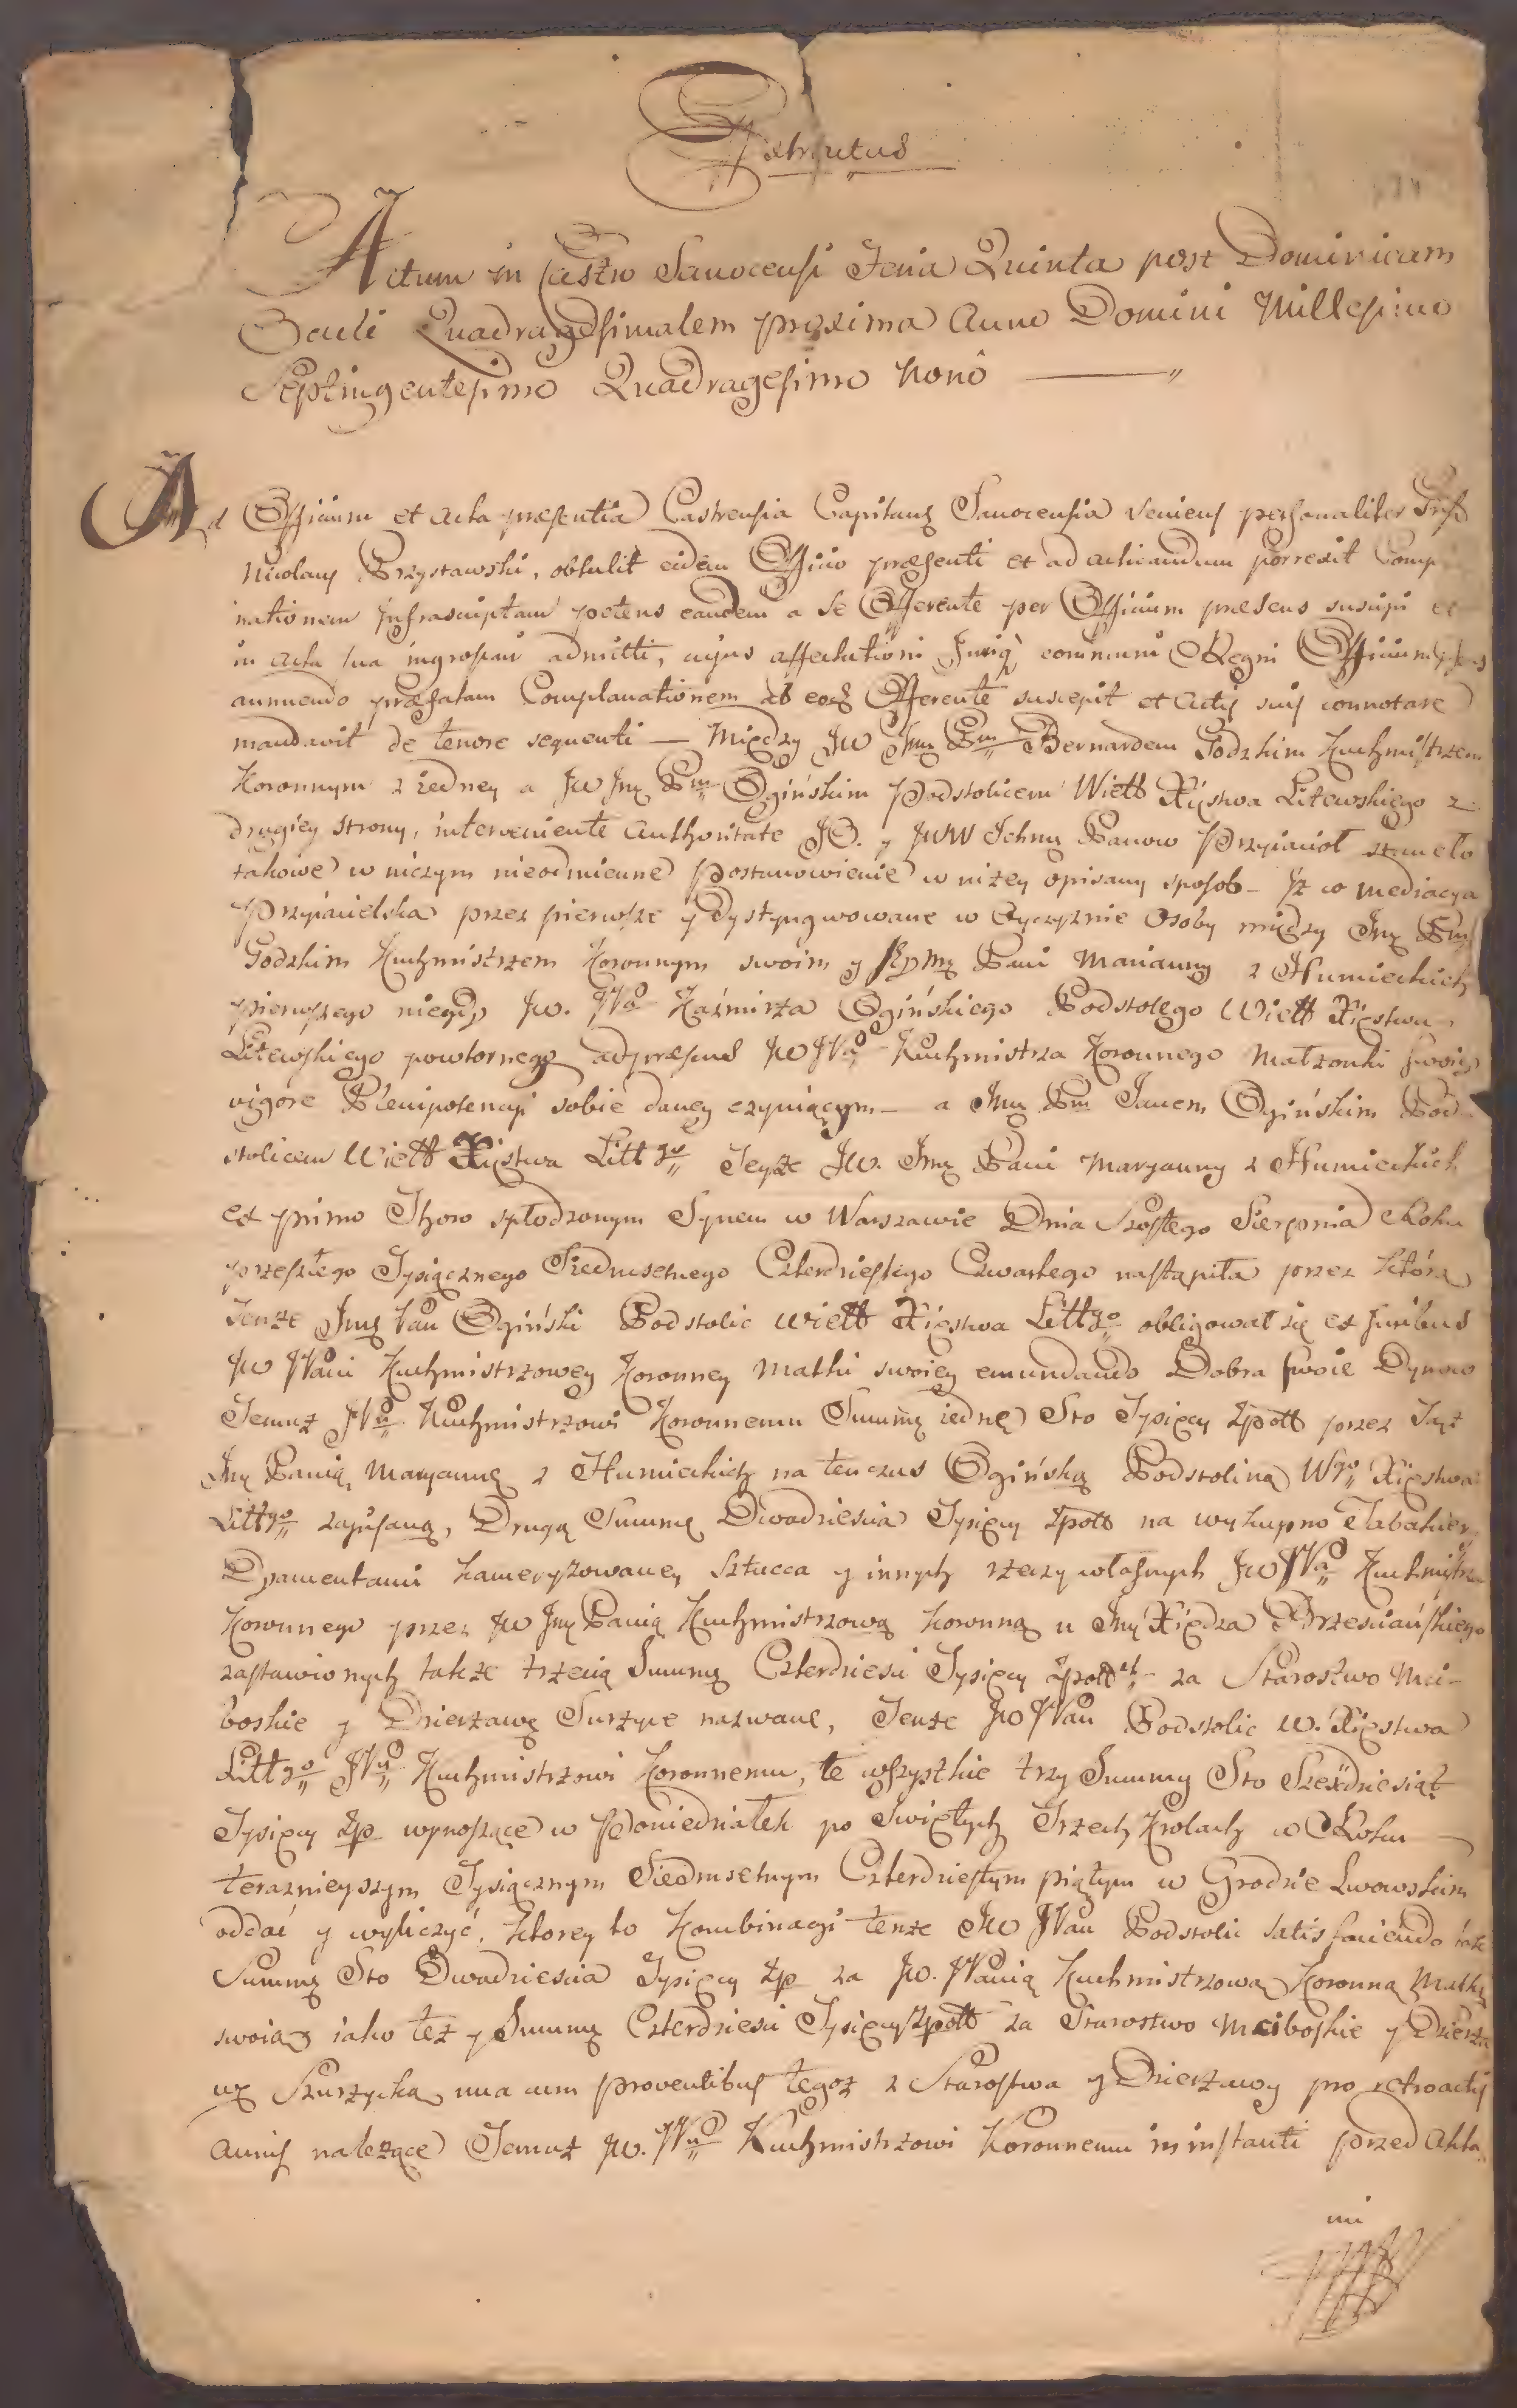 Extractus
Actum in Castro Sanocensi Feria Quinta post Dominicam
Oculi Quadragesimalem proxima Anno Domini Millesimo
Septingentesimo Quadragesimo Nonô
Ad Officium et Acta præsentia Castrensia Capitanea Sanocensia veniens personaliter
Nicolaus Brzystawski, obtulit eidem Officio præsenti et ad acticandum porrexit Comp
nationem infrascriptam petens eandem a se Offerente per Officium præsens suscipi et
in Acta sua ingrossari admitti, cujus affectationi Juriq communi Regni Officium
annuendo præfatam Complanationem ab eod Offerente suscepit et Actis suis connotare
mandavit de tenore sequenti — Między JW Jmę Pm Bernardem Godzkim Kuchmistrzem
Koronnym z iedney a JW Jmę Pm Ogińskim Podstolicem Wiell Xięstwa Litewskiego z
drugiey strony, interveniente Authoritate JO. y JWW Ichmę Panow Przyiacioł staneło
takowe w niczym nieodmienne Postanowienie w niżey opisany sposob – Iż co mediacya
Przyiacielska przez pierwsze y Dystyngwowane w Oyczyznie Osoby między Jmę Pm
Godzkim Kuchmistrzem Koronnym swoim y Jeymę Pani Marianny z Humieckich
pierwszego niegdy JW. JPa Kaźmirza Ogińskiego Podstolego Wiell Xięstwa
Litewskiego powtornego adpræsens JW JPa Kuchmistrza Koronnego Małżonki swoiey
vigore Plenipotencyi sobie daney czyniącym – a Jmę Pm Janem Ogińskim Pod
stolicem Wiell Xięstwa Litt go Teyże JW. Jmę Pani Maryanny z Humieckich
ex primo Thoro spłodzonym Synem w Warszawie Dnia Szostego Sierpnia Roku
przeszłego Tysiącznego Siedmsetnego Czterdziestego Czwartego nastąpiła przez którą
Tenże Jmę Pan Ogiński Podstolic Wiell Xięstwa Litt go obligował się ex juribus
JW JPani Kuchmistrzowey Koronney Matki swoiey emundando Dobra swoie Dynow
Temuż JPu Kuchmistrzowi Koronnemu Summę iednę Sto Tysięcy Zpoll przez Taż
Jmę Panią Maryannę z Humieckich na tenczas Ogińską Podstoliną Wgo Xięstwa
Littgo zapisaną, Drugą Summę Dwadziescia Tysięcy Zpoll na wykupno Tabakier
Dyamentami kameryzowaney Sztucca y innych rzeczy własnych JW JPa Kuchmistrza
Koronnego przez JW Jmę Panią Kuchmistrzową Koronną u Jmę Xiędza Brzesciańskiego
zastawionych także trzecią Summę Czterdziesci Tysięcy Zpoll ch – za Starostwo Mci-
boskie y Dzierżawę Surzyce nazwane, Tenże JW JPan Podstolic W. Xięstwa
Litt go JPu Kuchmistrzowi Koronnemu, te wszystkie trzy Summy Sto Szesćdziesiąt
Tysięcy Zp wynoszące w Poniedziałek po Swiętych Trzech Krolach w Roku
teraznieyszym Tysiącznym Siedmsetnym Czterdziestym piątym w Grodzie Lwowskim
oddać y wyliczyć, Ktorey to Kombinacyi tenże JW JPan Podstolic satisfaciendo tak
Summę Sto Dwadziescia Tysięcy Zp za JW. JPanią Kuchmistrzową Koronną Matkę
swoią iako też y Summę Czterdziesci Tysięcy Zpoll za Starostwo Mciboskie y Dzierża
wę Szurzycką una cum proventibus tegoż z Starostwa y Dzierżawy pro retroactis
annis należące Temuż JW. JPu Kuchmistrzowi Koronnemu in instanti przed Akta
mi